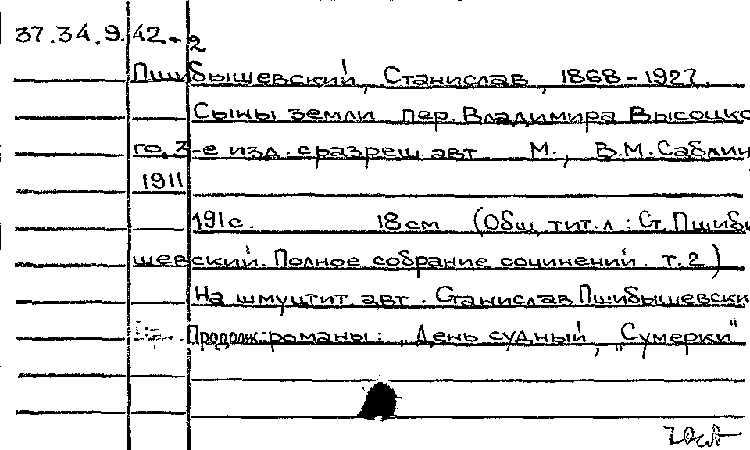 37.34.9.42-2
Пшибышевский, Станислав, 1868-1927.
Сыны земли пер. Владимира Высоцко
го, 3-е изд. сразреш авт М., В.М. Саблин
1911
191с. 18см (Общ. тит. л: Ст. Пшибы
шевский. Полное собрание сочинений. т.2)
На шмуцтит. авт. Станислав Пшибышевски
Продолж: романы: „День судный, „Сумерки"